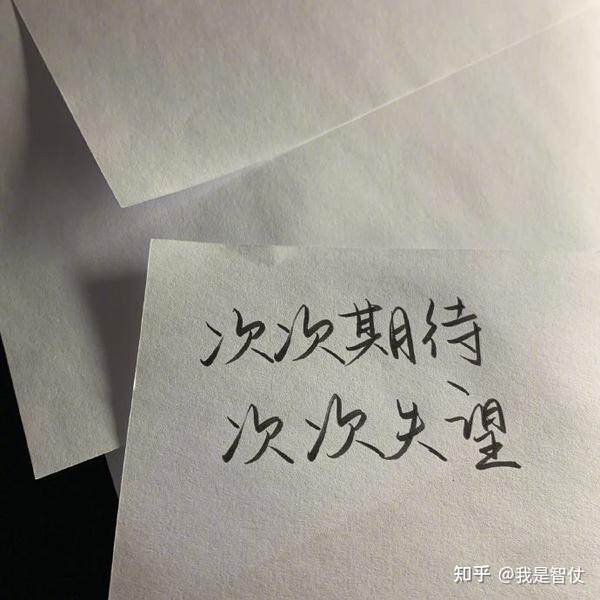 次次期待
次次失望
知乎 @我是智仗